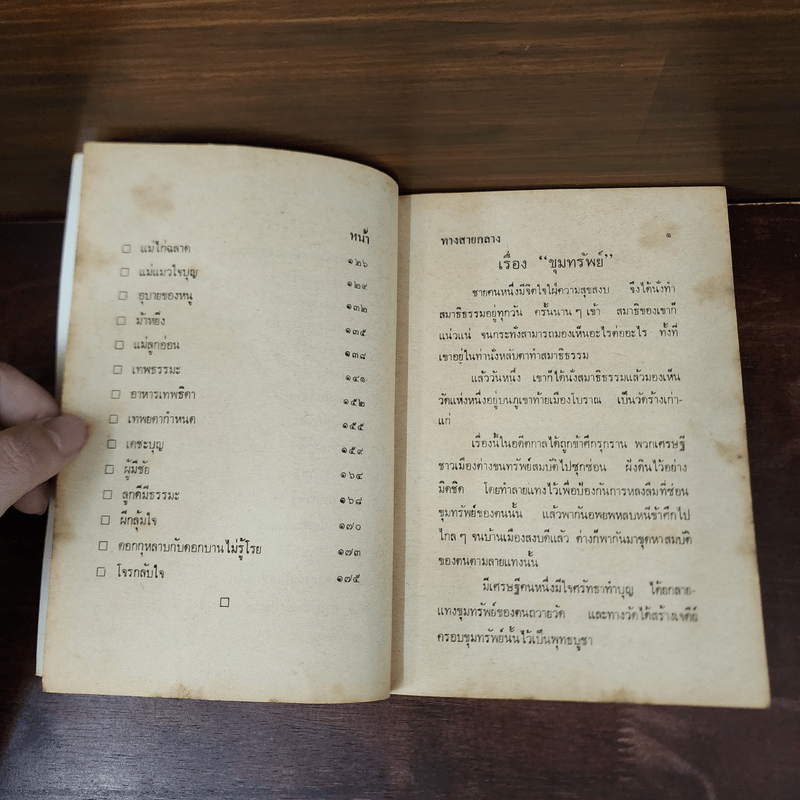 หน้า
□ แม่ไก่ฉลาด ๑๒๖
□ แม่แมวใจบุญ ๑๒๙
□ อุบายของหนู ๑๓๒
□ ม้าหยิ่ง ๑๓๕
□ แม่ลูกอ่อน ๑๓๘
□ เทพธรรมะ ๑๔๑
□ อาหารเทพธิดา ๑๕๒
□ เทพยดากำหนด ๑๕๕
□ เดชะบุญ ๑๕๙
□ ผู้มีชัย ๑๖๔
□ ลูกดีมีธรรมะ ๑๖๘
□ ผีกลุ้มใจ ๑๗๐
□ ดอกกุหลาบกับดอกบานไม่รู้โรย ๑๗๓
□ โจรกลับใจ ๑๗๕
□
ทางสายกลาง ๑
เรื่อง “ขุมทรัพย์”
ชายคนหนึ่งมีจิตใจใฝ่ความสุขสงบ จึงได้นั่งทำ
สมาธิธรรมอยู่ทุกวัน ครั้นนาน ๆ เข้า สมาธิของเขาก็
แน่วแน่ จนกระทั่งสามารถมองเห็นอะไรต่ออะไร ทั้งที่
เขาอยู่ในท่านั่งหลับตาทำสมาธิธรรม
แล้ววันหนึ่ง เขาก็ได้นั่งสมาธิธรรมแล้วมองเห็น
วัดแห่งหนึ่งอยู่บนภูเขาท้ายเมืองโบราณ เป็นวัดร้างเก่า-
แก่
เรื่องนี้ในอดีตกาลได้ถูกข้าศึกรุกราน พวกเศรษฐี
ชาวเมืองต่างขนทรัพย์สมบัติไปซุกซ่อน ฝังดินไว้อย่าง
มิดชิด โดยทำลายแทงไว้เพื่อป้องกันการหลงลืมที่ซ่อน
ขุมทรัพย์ของตนนั้น แล้วพากันอพยพหลบหนีข้าศึกไป
ไกล ๆ จนบ้านเมืองสงบดีแล้ว ต่างก็พากันมาขุดหาสมบัติ
ของตนตามลายแทงนั้น
มีเศรษฐีคนหนึ่งมีใจศรัทธาทำบุญ ได้ยกลาย-
แทงขุมทรัพย์ของตนถวายวัด และทางวัดได้สร้างเจดีย์
ครอบขุมทรัพย์นั้นไว้เป็นพุทธบูชา